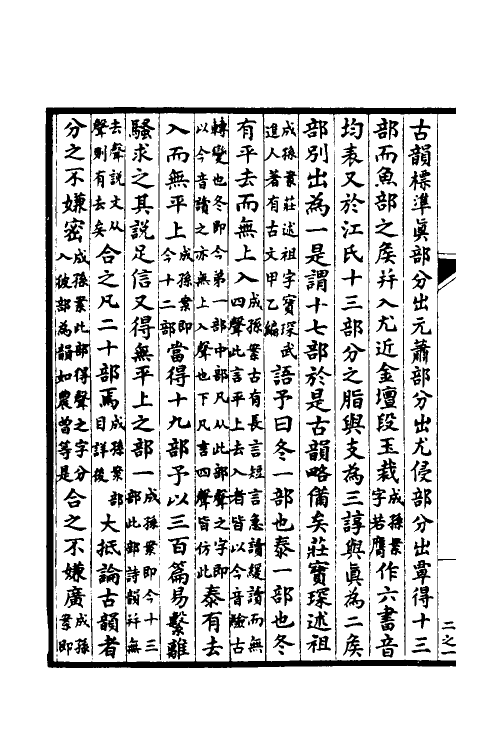 古韻標準眞部分出元蕭部分出尤侵部分出覃得十三
部而魚部之矦幷入尤近金壇段玉裁成孫案字若膺作六書音
均表又於江氏十三部分之脂與支為三諄與眞為二矦
部別出為一是謂十七部於是古韻略備矣莊寶琛述祖
成孫案莊述祖字寶琛武進人著有古文甲乙編語予曰冬一部也泰一部也冬
有平去而無上入成孫案古有長言短言急讀緩讀而無四聲此言平上去入者皆以今音驗古
轉變也冬即今弟一部中部凡从此部聲之字即以今音讀之亦無上入聲也下凡言四聲皆仿此泰有去
入而無平上成孫案即今十二部當得十九部予以三百篇易繫離
騷求之其說足信又得無平上之部一成孫案即今十三部此部詩韻幷無
去聲說文从聲則有去矣合之凡二十部焉成孫案部目詳後大抵論古韻者
分之不嫌密成孫案此部得聲之字分入彼部為韻如農曾等是合之不嫌廣成孫案即
二之一